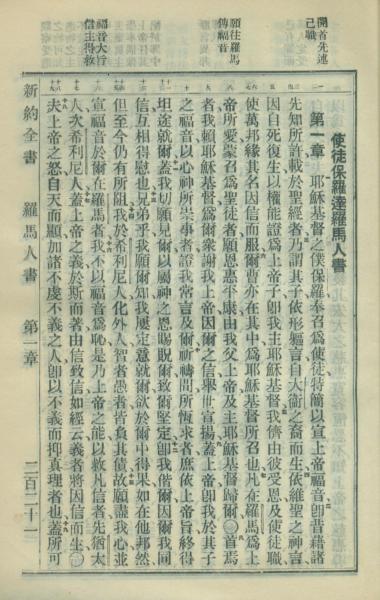 開首先述
己職
願往羅馬
傳福音
福音大旨
信主得救
使徒保羅達羅馬人書
第一章 耶穌基督之僕保羅奉召爲使徒特簡以宣上帝福音卽昔藉諸
先知所許載於聖經者乃謂其子依形軀言自大衛之裔而生依維聖之神言
因自死復生以權能證爲上帝子卽我主耶穌基督我儕由彼受恩及使徒職
使萬邦緣其名因信而服爾曹亦在其中爲耶穌基督所召也凡在羅馬爲上
帝所愛蒙召爲聖徒者願恩惠平康由我父上帝及主耶穌基督歸爾〇首焉
者我賴耶穌基督爲爾衆謝我上帝因爾之信舉世宣揚蓋上帝卽我於其子
之福音以心神所崇事者證我常言及爾祈禱間所恆求者庶依上帝旨終得
坦途就爾蓋我切願見爾以屬神之恩賜貺爾致爾堅定卽我偕爾因爾我同
信互相得慰也兄弟乎我願爾知我屢定意就爾欲於爾中得果如在他邦然
但至今仍有所阻我於希利尼人化外人智者愚者皆負其債故願盡我心並
宣福音於爾在羅馬者我不以福音爲恥是乃上帝之能以救凡信者先猶太
人次希利尼人蓋上帝之義於斯而著由信致信如經云義者將因信而生〇
夫上帝之怒自天而顯加諸不虔不義之人卽以不義而抑眞理者也蓋所可
新約全書 羅馬人書 第一章 二百二十一